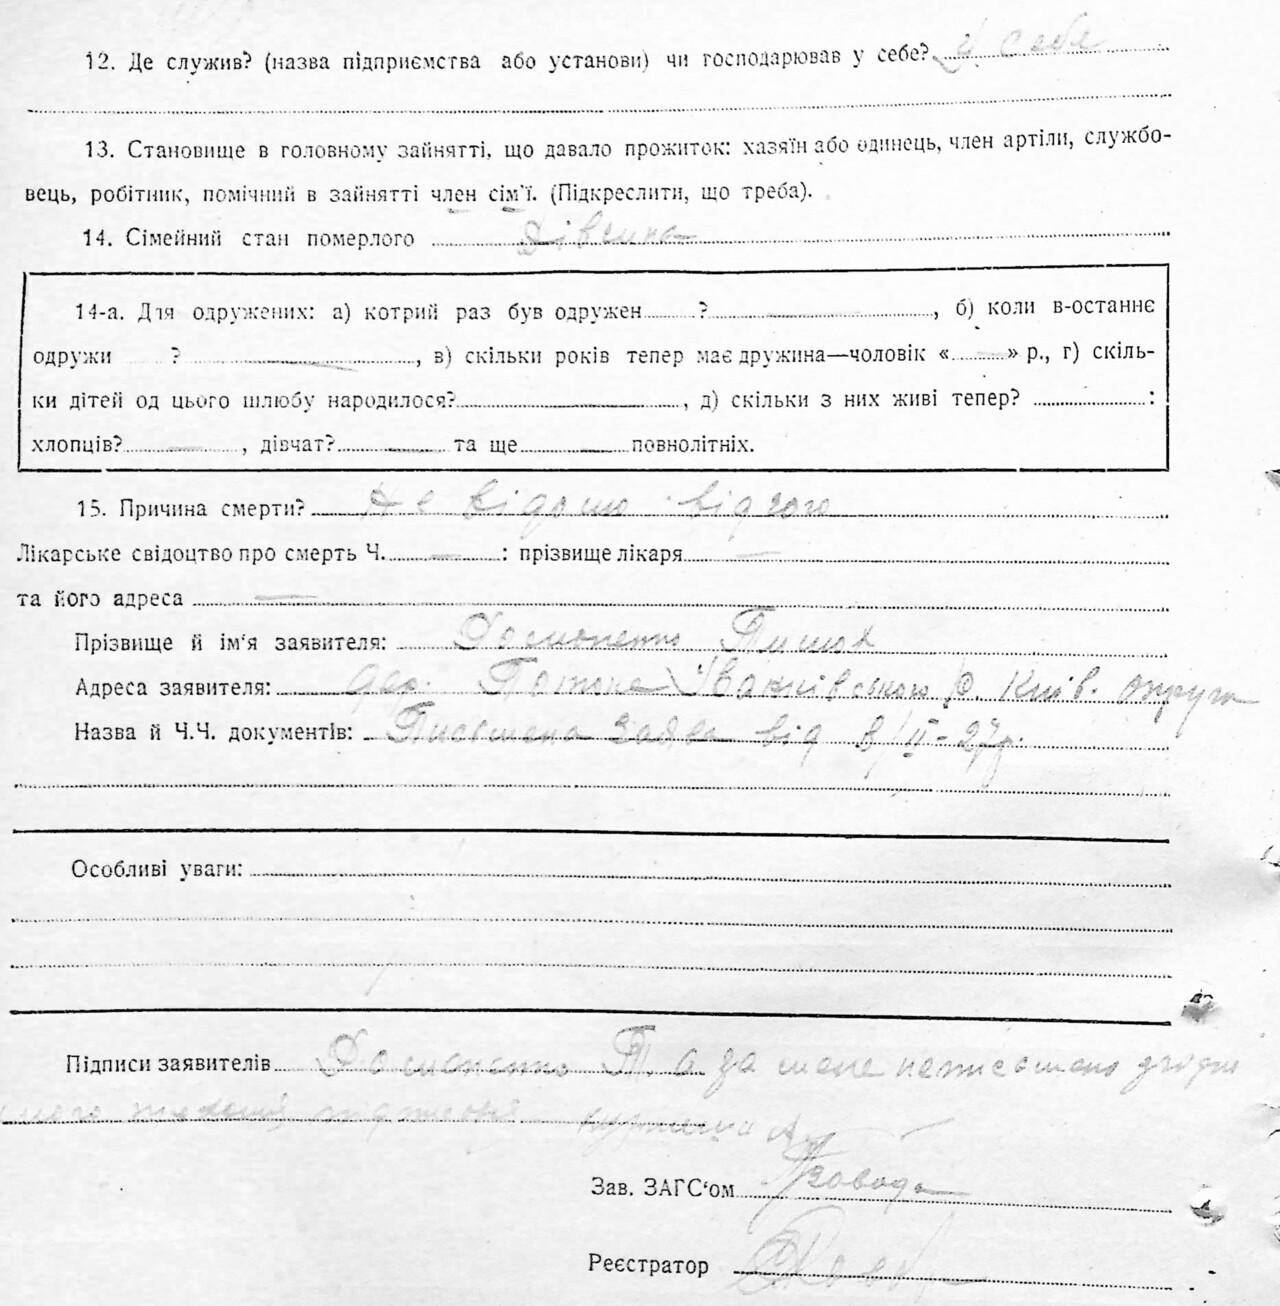 12. Де служив? (назва підприємства або установи) чи господарював у себе? у себе
13. Становище в головному зайнятті, що давало прожиток: хазяїн або одинець, член артіли, службо-
вець, робітник, помічний в зайнятті член сім'ї. (Підкреслити, що треба).
14. Сімейний стан померлого дівчина
14-а. Для одружених: а) котрий раз був одружен ? — , б) коли в-останнє
одружи ? — , в) скільки років тепер має дружина—чоловік « — » р., г) скіль-
ки дітей од цього шлюбу народилося? — , д) скільки з них живі тепер? :
хлопців? — , дівчат? — та ще — повнолітніх.
15. Причина смерти? Не відомо від чого
Лікарське свідоцтво про смерть Ч. — : прізвище лікаря —
та його адреса —
Прізвище й ім'я заявителя:
Адреса заявителя: Іванківського р. Київ. округи
Назва й Ч.Ч. документів: Писемена заява від 8/II-27р.
Особливі уваги:
Підписи заявителів Т. а за мене неписемено згідно
Зав. ЗАГС'ом
Реєстратор